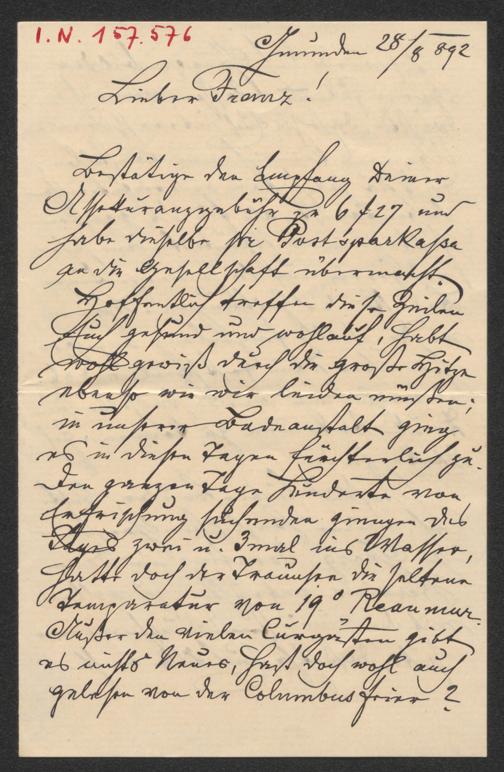 I.N. 157.576
Gmunden 28/8 892
Lieber Franz!
Bestätige den Empfang Deiner
Assekuranzgebühr zu 6 f 27 und
habe dieselbe per Postsparkassa
an die Gesellschaft übermacht.
Hoffentlich treffen diese Zeilen
Euch gesund und wohlauf, habt
wohl gewiß durch die große Hitze
ebenso wie wir leiden müssen;
in unserer Badeanstalt ging
es in diesen Tagen fürchterlich zu.
Den ganzen Tage hunderte von
Erfrischung suchenden giengen des
Tages zwei u. 3mal ins Wasser,
hatte doch der Traunsee die seltene
Temparatur von 19° Reaumur.
Außer den vielen Curgästen gibt
es nichts Neues, hast doch wohl auch
gelesen von der Columbusfeier?